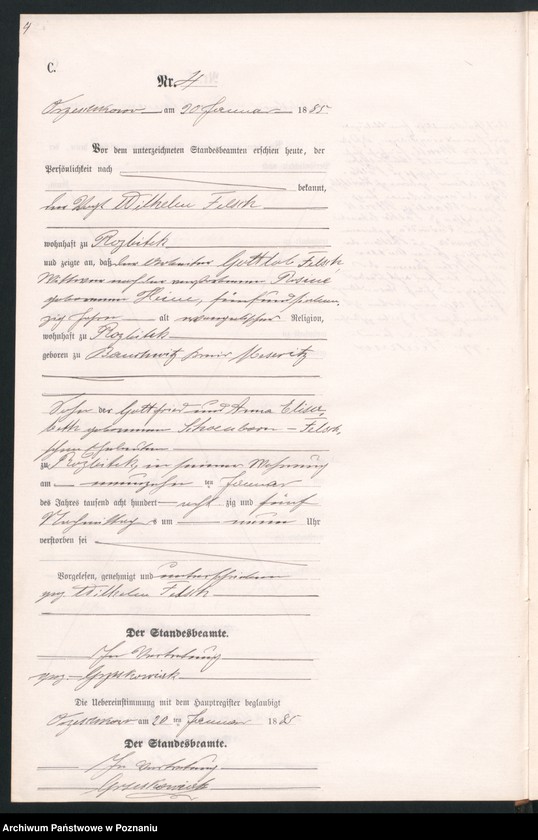 4
C.
Nr. 4
am 20 Januar 1885
Vor dem unterzeichneten Standesbeamten erschien heute, der
Persönlichkeit nach
bekannt,
der Vogt Wilhelm Felsch
wohnhaft zu Rozbitek
und zeigte an, daß der Arbeiter Gottlob Felsch,
Wittwer von der verstorbenen Rosine
geborenen Heine, fünfundsieben-
zig Jahre alt evangelischer Religion,
wohnhaft zu Rozbitek
geboren zu Bauchwitz Kreis Meseritz
Sohn der Gottfried und Anna Elisa-
beth geborenen Schoenborn - Felsch-
schen Eheleuten
zu Rozbitek, in seiner Wohnung
am neunzehn ten Januar
des Jahres tausend acht hundert acht zig und fünf
Nachmittag s um neun Uhr
verstorben sei
Vorgelesen, genehmigt und unterschrieben
gez Wilhelm Felsch
Der Standesbeamte.
In Vertretung
gez Grzeskowiak
Die Uebereinstimmung mit dem Hauptregister beglaubigt
am 20 ten Januar 1885
Der Standesbeamte.
In Vertretung
Grzeskowiak
Archiwum Państwowe w Poznaniu